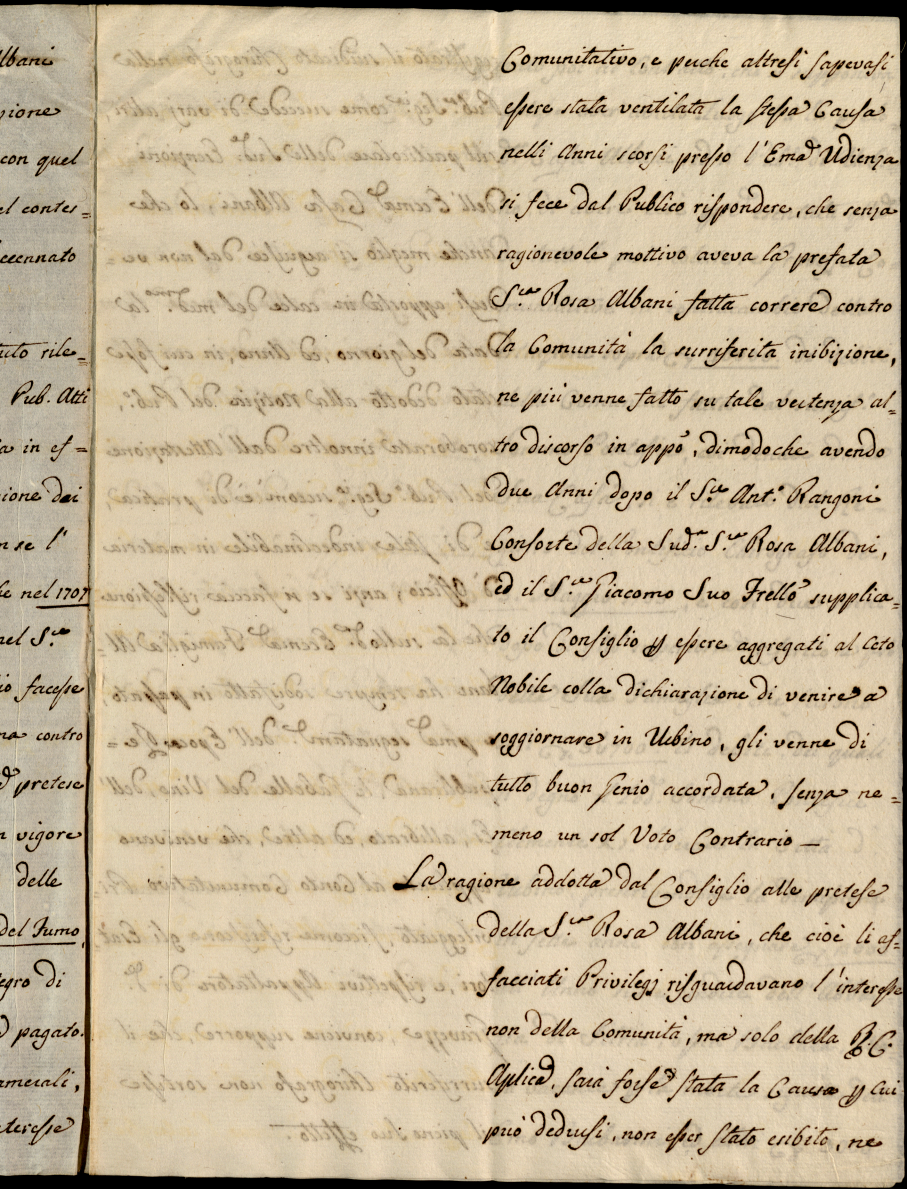 lbani
gione
con quel
el contes=
ccennato
tuto rile=
Pub. Atti
a in ef=
zione dei
n se l'
he nel 1707
nel S.ra
io facesse
na contro
pretese
n vigore
delle
del Fumo,
egro di
pagato.
amerali,
teresse
Comunitativo, e perche altresì sapevasi
essere stata ventilata la stessa Causa
nelli Anni scorsi presso l'Ema Udienza
si fece dal Publico rispondere, che senza
ragionevole mottivo aveva la prefata
S.ra Rosa Albani fatta correre contro
la Comunità la surriferita inibizione,
ne più venne fatto su tale vertenza al=
tro discorso in appo, dimodoche avendo
due Anni dopo il S.re Ant.o Rangoni
Consorte della Sud.a S.ra Rosa Albani,
ed il S.re Giacomo Suo Frello supplica=
to il Consiglio p essere aggregati al Ceto
Nobile colla dichiarazione di venire a
soggiornare in Urbino, gli venne di
tutto buon Genio accordata, senza ne=
meno un sol Voto Contrario —
La ragione addotta dal Consiglio alle pretese
della S.ra Rosa Albani, che cioè li af=
facciati Privilegj risguardavano l'interesse
non della Comunità, ma solo della R.C.
Aplica, sarà forse stata la Causa p cui
può dedursi, non esser stato esibito, ne